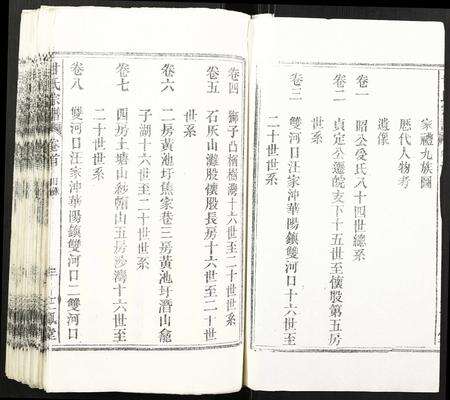 家禮九族圖
歷代人物考
遺像
卷一　昭公受氏八十四世總系
卷二　貞定公遷皖亥下十五世至懷股第五房
世系
卷三　雙河口汪家沖華陽鎮雙河口十六世至
二十世世系
卷四　獅子凸楠樹灣十六世至二十世世系
卷五　石灰山灘股懷股長房十六世至二十世
世系
卷六　二房黃池圩焦家巷三房黃池圩潛山
子湖十六世至二十世世系
卷七　四房土塘山紗帽山五房沙灣十六世至
二十世世系
卷八　雙河口汪家沖華陽鎮雙河口二雙河口
甘氏宗譜　卷首　目錄